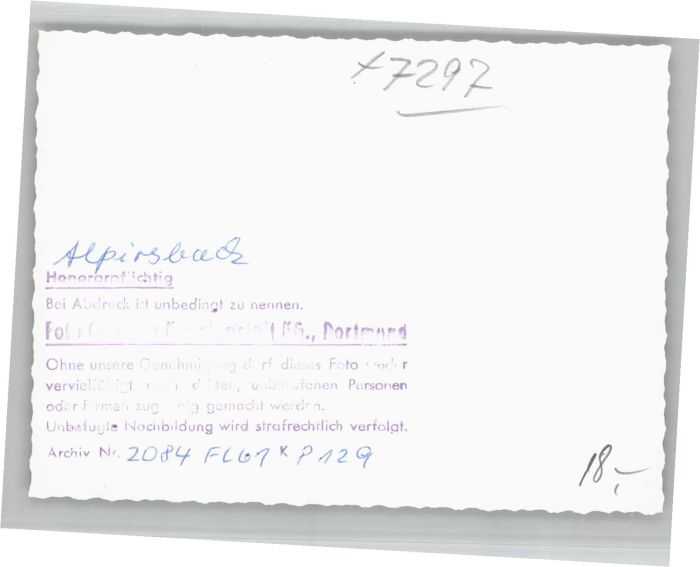 x7297
Alpirsbach
Honorarpflichtig
Bei Abdruck ist unbedingt zu nennen.
Foto KG., Dortmund
Ohne unsere Genehmigung darf dieses Foto weder
vervielfältigt noch dritten, unberufenen Personen
oder Firmen zugängig gemacht werden.
Unbefugte Nachbildung wird strafrechtlich verfolgt.
Archiv Nr. 2084 FL61 K P129
18,-